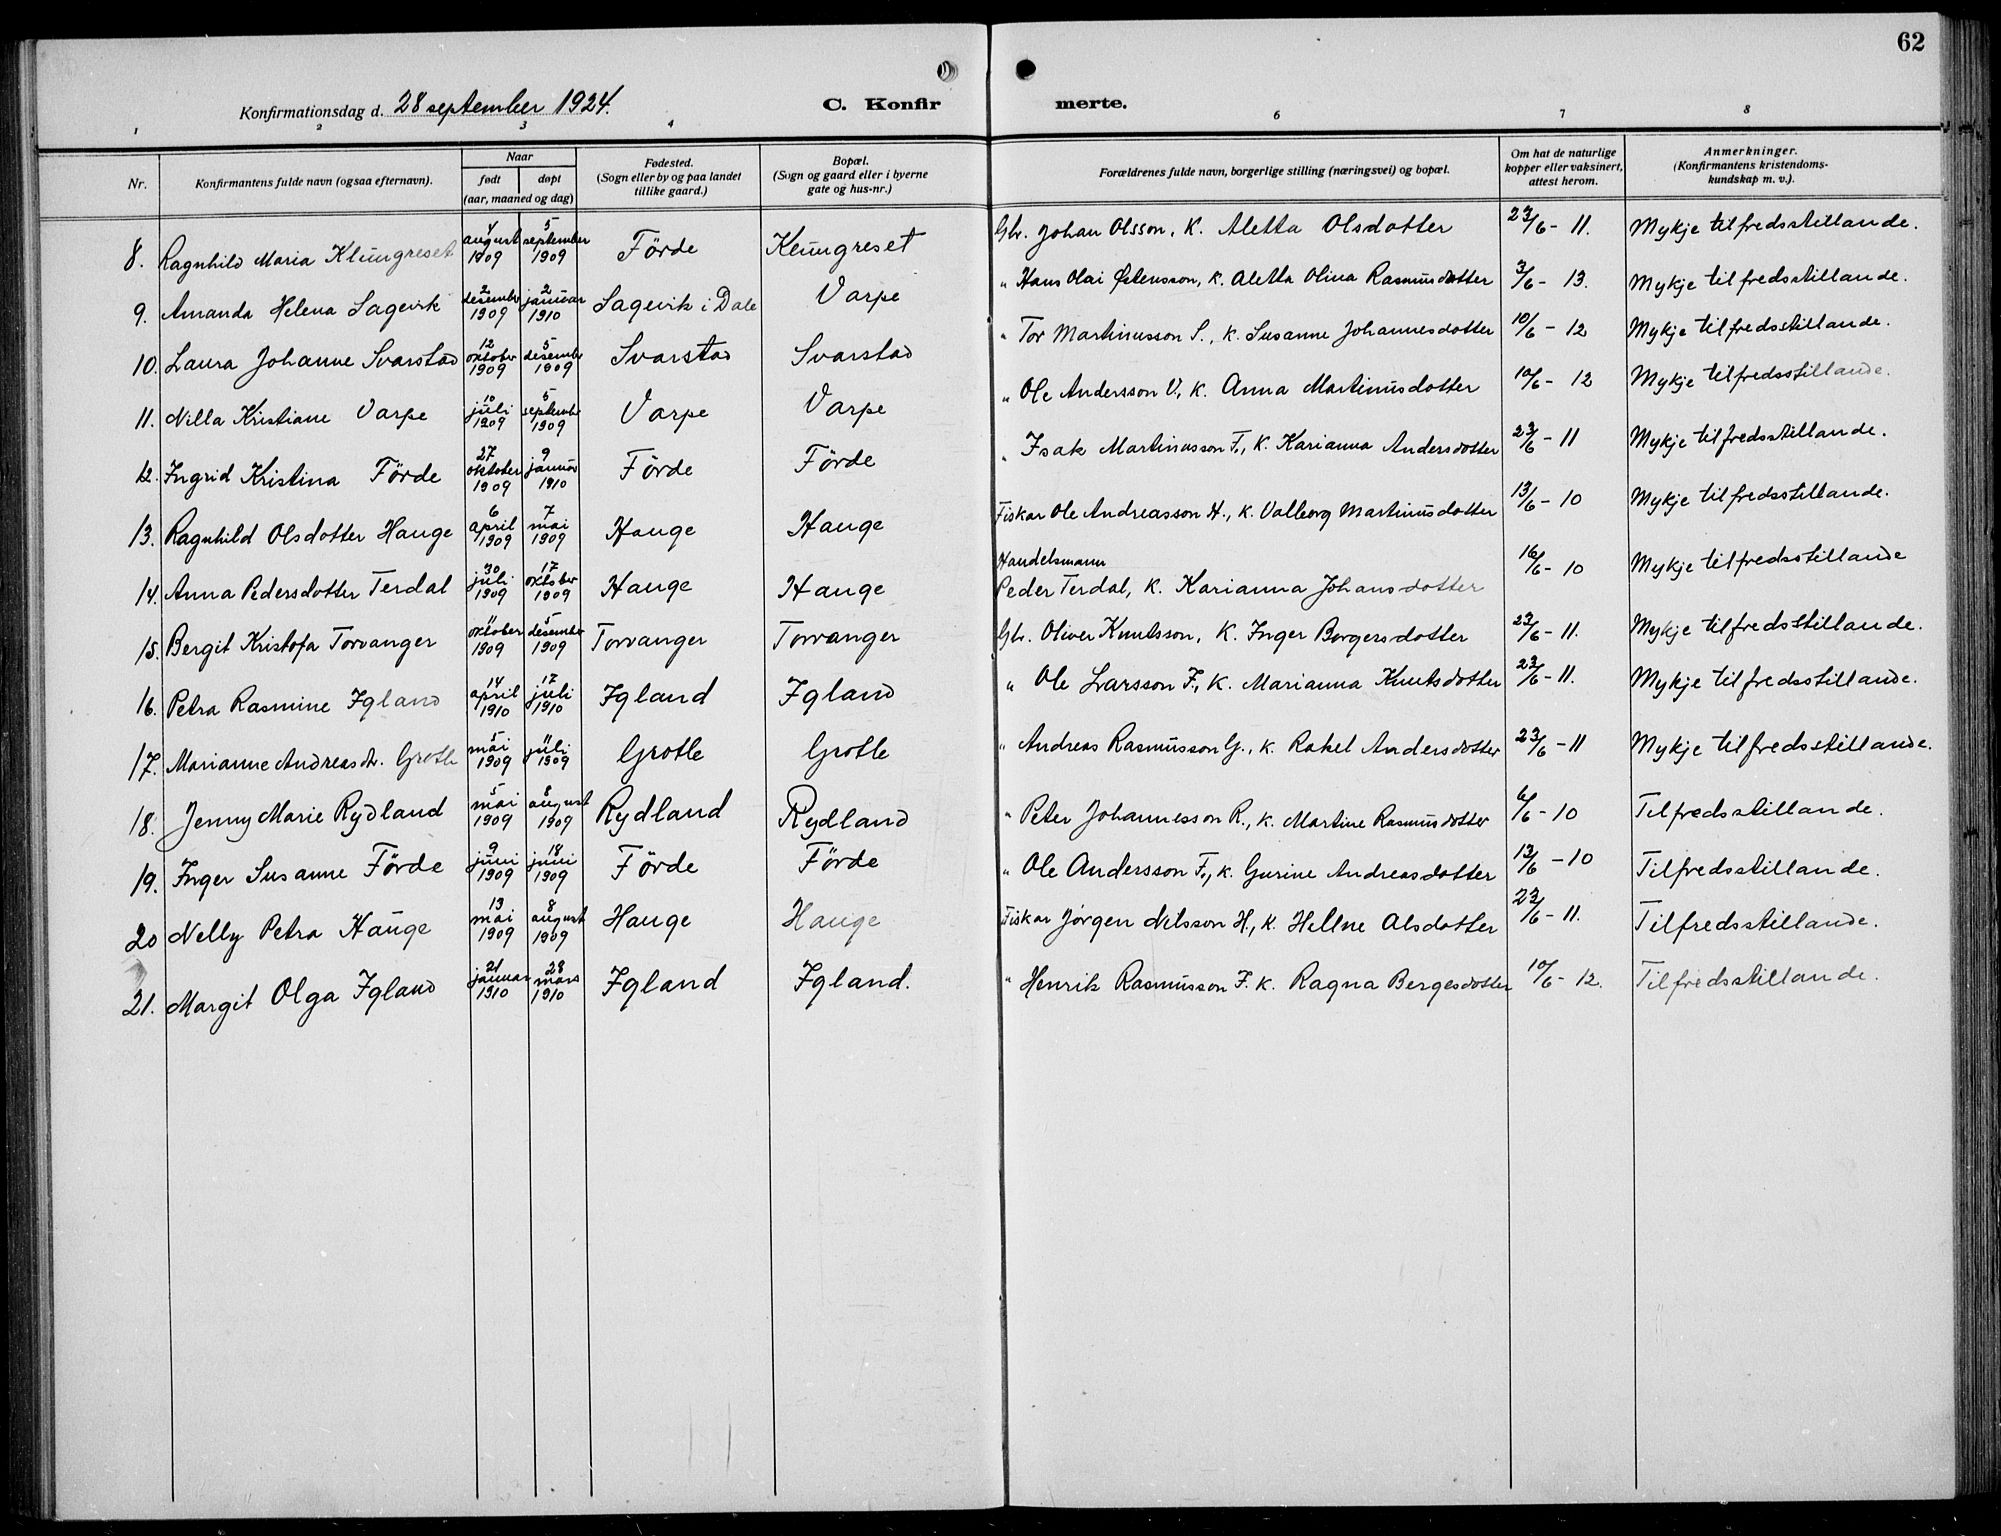 62
Konfirmationsdag d. 28 september 1924.
C. Konfirmerte.
1 2 3 4 6 7 8
Nr.
Konfirmantens fulde navn (ogsaa efternavn).
Naar
født døpt
(aar, maaned og dag)
Fødested.
(Sogn eller by og paa landet
tillike gaard.)
Bopæl.
(Sogn og gaard eller i byerne
gate og hus-nr.)
Forældrenes fulde navn, borgerlige stilling (næringsvei) og bopæl.
Om hat de naturlige
kopper eller vaksinert,
attest herom.
Anmerkninger.
(Konfirmantens kristendoms-
kundskap m. v.).
8. Ragnhild Maria Klungreset 4 august 1909 5 september 1909 Förde Klungreset Gbr. Johan Olsson, K. Aletta Olsdotter 23/6 - 11. Mykje tilfredsstillande.
9. Amanda Helena Sagevik 2 desember 1909 2 januar 1910 Sagevik i Dale Varpe " Hans Olai Østensson, K. Aletta Olina Rasmusdotter 3/6 - 13. Mykje tilfredsstillande.
10. Laura Johanne Svarstad 12 oktober 1909 5 desembr 1909 Svarstad Svarstad " Tor Martinusson S., K. Susanne Johannesdotter 10/6 - 12 Mykje tilfredsstillande.
11. Nilla Kristiane Varpe 10 juli 1909 5 septembr 1909 Varpe Varpe " Ole Andersson V., K. Anna Martinusdotter 10/6 - 12 Mykje tilfredsstillande.
12. Ingrid Kristina Förde 27 oktober 1909 9 januar 1910 Förde Förde " Isak Martinusson F., K. Karianna Andersdotter 23/6 - 11 Mykje tilfredsstillande.
13. Ragnhild Olsdotter Hauge 6 april 1909 7 mai 1909 Hauge Hauge Fiskar Ole Andreasson H., K. Valborg Martinusdotter 13/6 - 10 Mykje tilfredsstillande.
14. Anna Pedersdotter Terdal 30 juli 1909 17 oktober 1909 Hauge Hauge Handelsmann
Peder Terdal, K. Karianna Johansdotter 16/6 - 10 Mykje tilfredsstillande
15. Bergit Kristofa Torvanger 11 oktober 1909 5 desember 1909 Torvanger Torvanger Gbr. Oliver Knutsson, K. Inger Borgersdotter 23/6 - 11. Mykje tilfredsstillande.
16. Petra Rasmine Igland 14 april 1910 17 juli 1910 Igland Igland " Ole Larsson F., K. Marianna Knutsdotter 23/6 - 11. Mykje tilfredsstillande.
17. Marianne Andreasd. Grotle 5 mai 1909 11 juli 1909 Grotle Grotle " Andreas Rasmusson G., K. Rakel Andersdotter 23/6 - 11 Mykje tilfredsstillande.
18. Jenny Marie Rydland 5 mai 1909 8 august 1909 Rydland Rydland " Peter Johannesson R., K. Martine Rasmusdotter 6/6 - 10 Tilfredsstillande.
19. Inger Susanne Förde 9 juni 1909 18 juni 1909 Förde Förde " Ole Andersson F., K. Gurine Andreasdotter 13/6 - 10 Tilfredsstillande.
20 Nelly Petra Hauge 13 mai 1909 8 august 1909 Hauge Hauge Fiskar Jørgen Nilsson H., K. Hellne Alsdotter 23/6 - 11. Tilfredsstillande.
21. Margit Olga Igland 21 januar 1910 28 mars 1910 Igland Igland. " Henrik Rasmusson F. K. Ragna Bergesdotter 10/6 - 12. Tilfredsstillande.